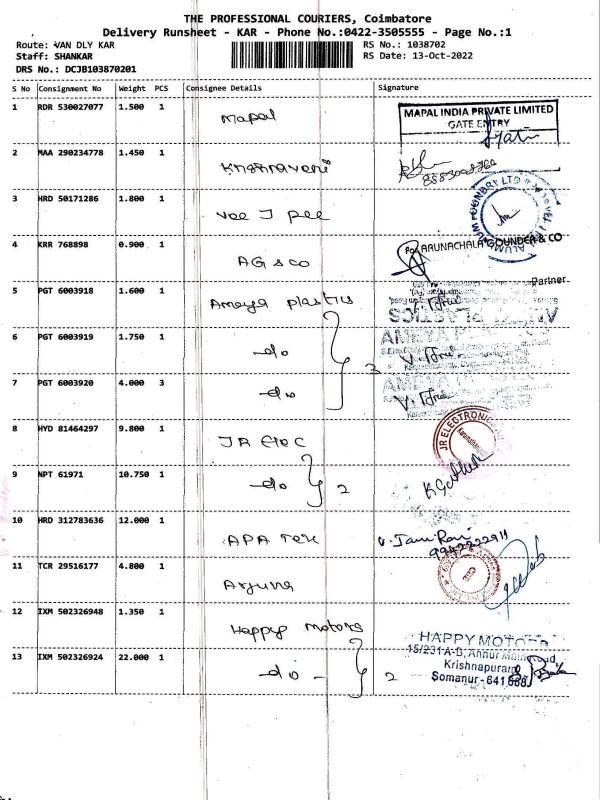 THE PROFESSIONAL COURIERS, Coimbatore
Delivery Runsheet - KAR - Phone No.:0422-3505555 - Page No.:1
Route: VAN DLY KAR
RS No.: 1038702
Staff: SHANKAR
RS Date: 13-Oct-2022
DRS No.: DCJB103870201
S No Consignment No Weight PCS Consignee Details Signature
1 RDR 530027077 1.500 1 Mapal
MAPAL INDIA PRIVATE LIMITED
GATE ENTRY
2 MAA 290234778 1.450 1
3 HRD 50171286 1.800 1 Vee J Pee
4 KRR 768898 0.900 1 AG & CO
For ARUNACHALA GOUNDER & CO
Partner
5 PGT 6003918 1.600 1 Ameya Plastics
6 PGT 6003919 1.750 1 -do
7 PGT 6003920 4.000 3 -do
3
8 HYD 81464297 9.800 1 JR Elec
JR ELECTRONIC
9 NPT 61971 10.750 1 -do 2
10 HRD 312783636 12.000 1 APA TEK
9942222911
11 TCR 29516177 4.800 1 Arjuna
12 IXM 502326948 1.350 1 Happy Motors
HAPPY MOTORS
15/231 A-B, Annur Main Road,
Krishnapuram
Somanur - 641 668.
13 IXM 502326924 22.000 1 -do - 2